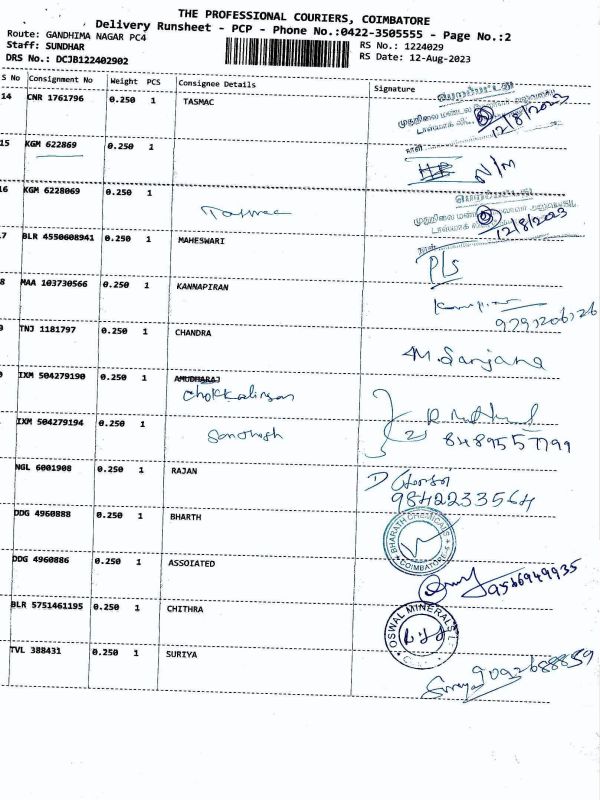 THE PROFESSIONAL COURIERS, COIMBATORE
Delivery Runsheet - PCP - Phone No.:0422-3505555 - Page No.:2
Route: GANDHIMA NAGAR PC4
Staff: SUNDHAR RS No.: 1224029
DRS No.: DCJB122402902 RS Date: 12-Aug-2023
S No Consignment No Weight PCS Consignee Details Signature
14 CNR 1761796 0.250 1 TASMAC
12/8/2023
15 KGM 622869 0.250 1
N/M
16 KGM 6228069 0.250 1
Tasmac
12/8/2023
7 BLR 4550608941 0.250 1 MAHESWARI
P/S
8 MAA 103730566 0.250 1 KANNAPIRAN
TNJ 1181797 0.250 1 CHANDRA
M. Sanjana
IXM 504279190 0.250 1 AMUDHARAJ
Chokkalingam
IXM 504279194 0.250 1 Santhosh
8489557799
NGL 6001908 0.250 1 RAJAN
9842233564
DDG 4960888 0.250 1 BHARTH
BHARATH CHEMICALS COIMBATORE-4
DDG 4960886 0.250 1 ASSOIATED
9566949935
BLR 5751461195 0.250 1 CHITHRA
OSWAL MINERALS
TVL 388431 0.250 1 SURIYA
Suriya 9092688859